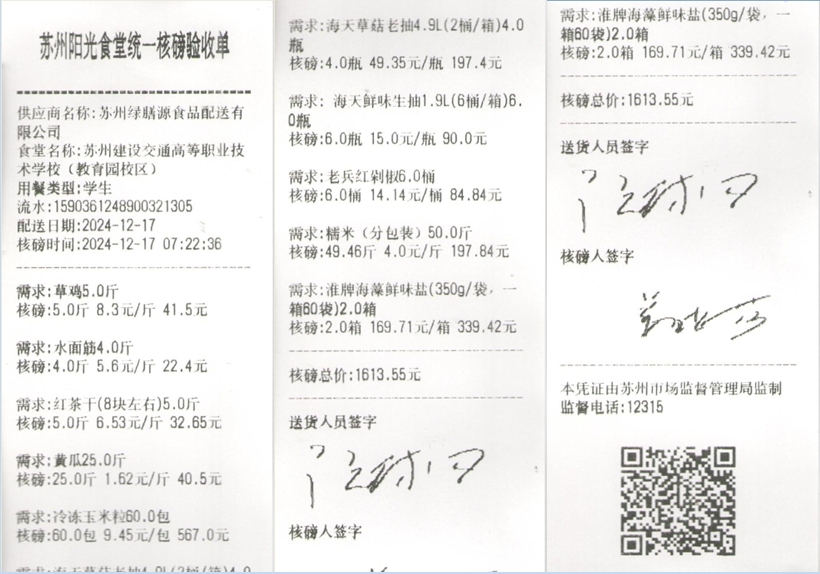 苏州阳光食堂统一核磅验收单
供应商名称:苏州绿膳源食品配送有
限公司
食堂名称:苏州建设交通高等职业技
术学校（教育园校区）
用餐类型:学生
流水:1590361248900321305
配送日期:2024-12-17
核磅时间:2024-12-17 07:22:36
需求:草鸡5.0斤
核磅:5.0斤 8.3元/斤 41.5元
需求:水面筋4.0斤
核磅:4.0斤 5.6元/斤 22.4元
需求:红茶干(8块左右)5.0斤
核磅:5.0斤 6.53元/斤 32.65元
需求:黄瓜25.0斤
核磅:25.0斤 1.62元/斤 40.5元
需求:冷冻玉米粒60.0包
核磅:60.0包 9.45元/包 567.0元
需求:海天草菇老抽4.9L(2桶/箱)4.0
需求:海天草菇老抽4.9L(2桶/箱)4.0
瓶
核磅:4.0瓶 49.35元/瓶 197.4元
需求: 海天鲜味生抽1.9L(6桶/箱)6.
0瓶
核磅:6.0瓶 15.0元/瓶 90.0元
需求:老兵红剁椒6.0桶
核磅:6.0桶 14.14元/桶 84.84元
需求:糯米（分包装）50.0斤
核磅:49.46斤 4.0元/斤 197.84元
需求:淮牌海藻鲜味盐(350g/袋，一
箱60袋)2.0箱
核磅:2.0箱 169.71元/箱 339.42元
核磅总价:1613.55元
送货人员签字
核磅人签字
需求:淮牌海藻鲜味盐(350g/袋，一
箱60袋)2.0箱
核磅:2.0箱 169.71元/箱 339.42元
核磅总价:1613.55元
送货人员签字
核磅人签字
本凭证由苏州市场监督管理局监制
监督电话:12315